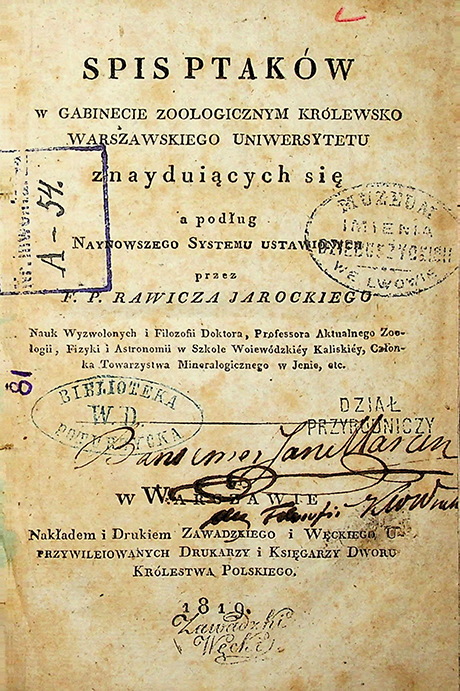 SPIS PTAKÓW
W GABINECIE ZOOLOGICZNYM KRÓLEWSKO
WARSZAWSKIEGO UNIWERSYTETU
znayduiących się
a podług
NAYNOWSZEGO SYSTEMU USTAWIONYCH
przez
F. P. RAWICZA JAROCKIEGO
A-54
MUZEUM
IMIENIA
DZIEDUSZYCKICH
WE LWOWIE
Nauk Wyzwolonych i Filozofii Doktora, Professora Aktualnego Zoo-
logii, Fizyki i Astronomii w Szkole Woiewódzkiéy Kaliskiéy, Człon-
ka Towarzystwa Mineralogicznego w Jenie, etc.
81
BIBLIOTEKA
W. D.
POTURZYCKA
DZIAŁ
PRZYRODNICZY
W WARSZAWIE
Nakładem i Drukiem ZAWADZKIEGO i WĘCKIEGO U-
PRZYWILEIOWANYCH DRUKARZY i KSIĘGARZY DWORU
KRÓLESTWA POLSKIEGO.
1819.
Zawadzki
Węcki